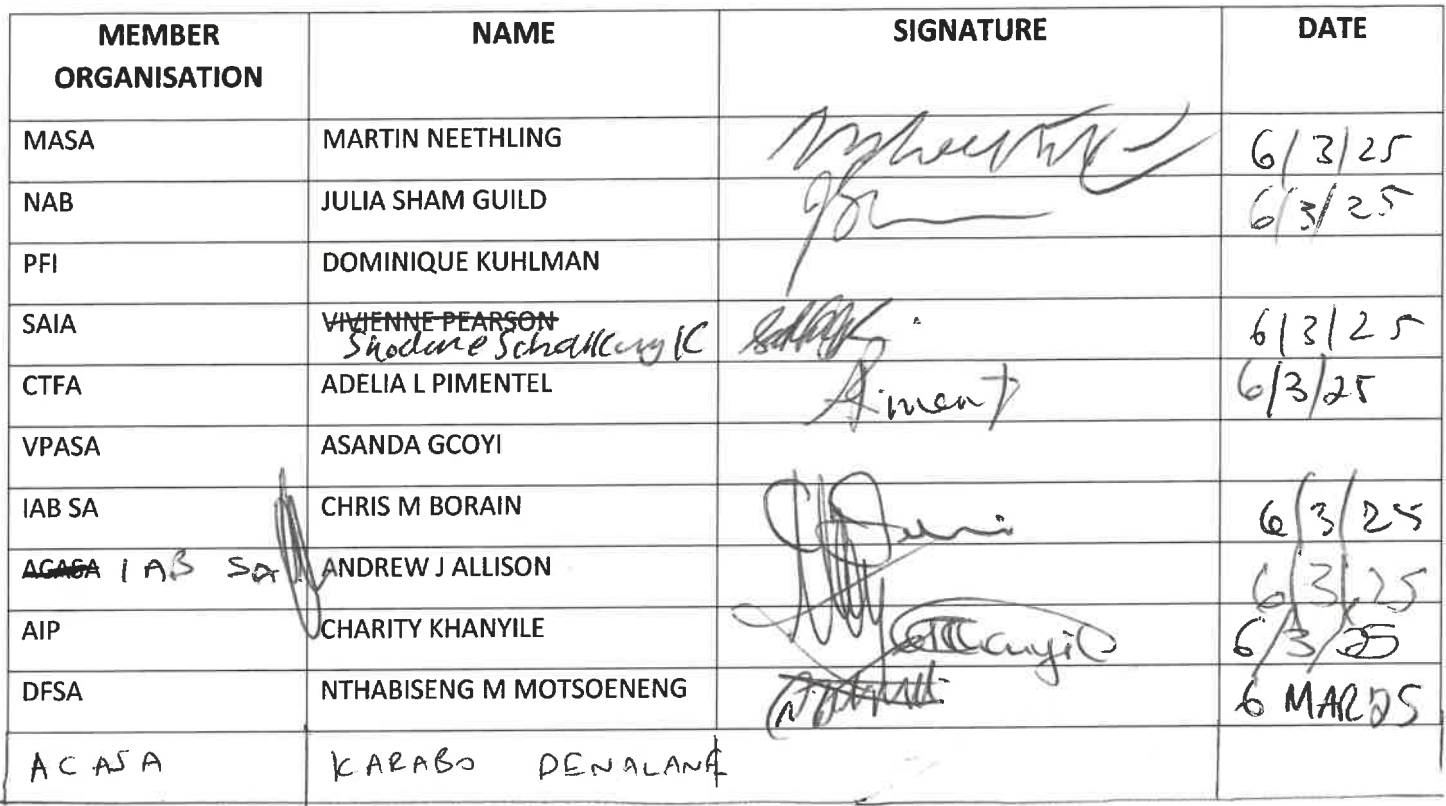 MEMBER ORGANISATION NAME SIGNATURE DATE
MASA MARTIN NEETHLING 6/3/25
NAB JULIA SHAM GUILD 6/3/25
PFI DOMINIQUE KUHLMAN
SAIA VIVIENNE PEARSON 6/3/25
CTFA ADELIA L PIMENTEL 6/3/25
VPASA ASANDA GCOYI
IAB SA CHRIS M BORAIN 6/3/25
ACASA IAB SA ANDREW J ALLISON 6/3/25
AIP CHARITY KHANYILE 6/3/25
DFSA NTHABISENG M MOTSOENENG 6 MAR 25
ACASA KARABO DENALANE